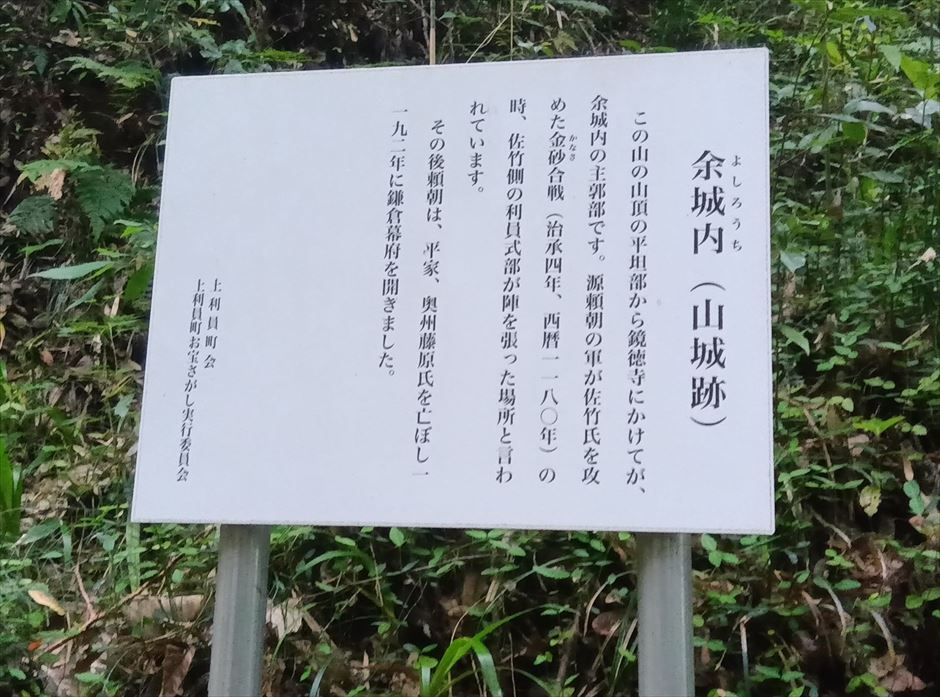 余城内（山城跡）
よしろうち
この山の山頂の平坦部から鏡徳寺にかけてが、
余城内の主郭部です。源頼朝の軍が佐竹氏を攻
めた金砂合戦（治承四年、西暦一一八〇年）の
かなさ
時、佐竹側の利員式部が陣を張った場所と言わ
れています。
その後頼朝は、平家、奥州藤原氏を亡ぼし一
一九二年に鎌倉幕府を開きました。
上利員町会
上利員町お宝さがし実行委員会